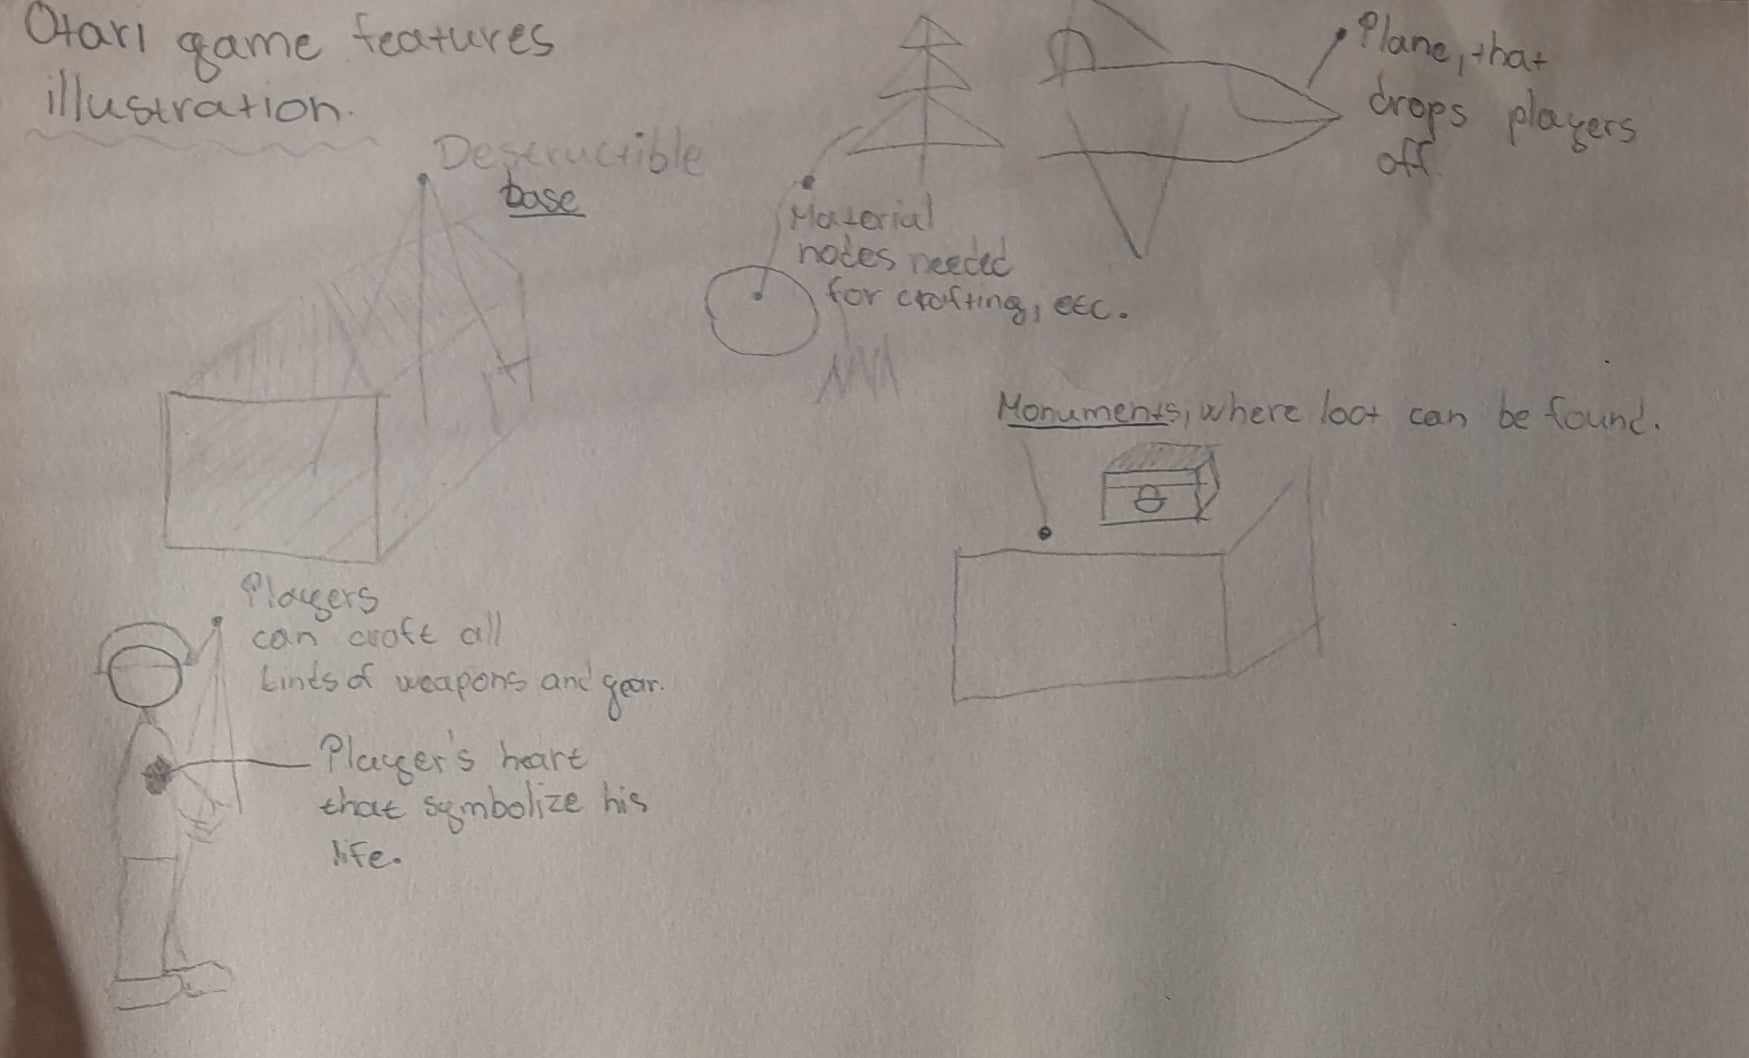 Otari game features
illustration.
Destructible
base
Material
nodes needed
for crafting, etc.
Plane, that
drops players
off
Monuments, where loot can be found.
Players
can craft all
kinds of weapons and gear.
Player's heart
that symbolize his
life.